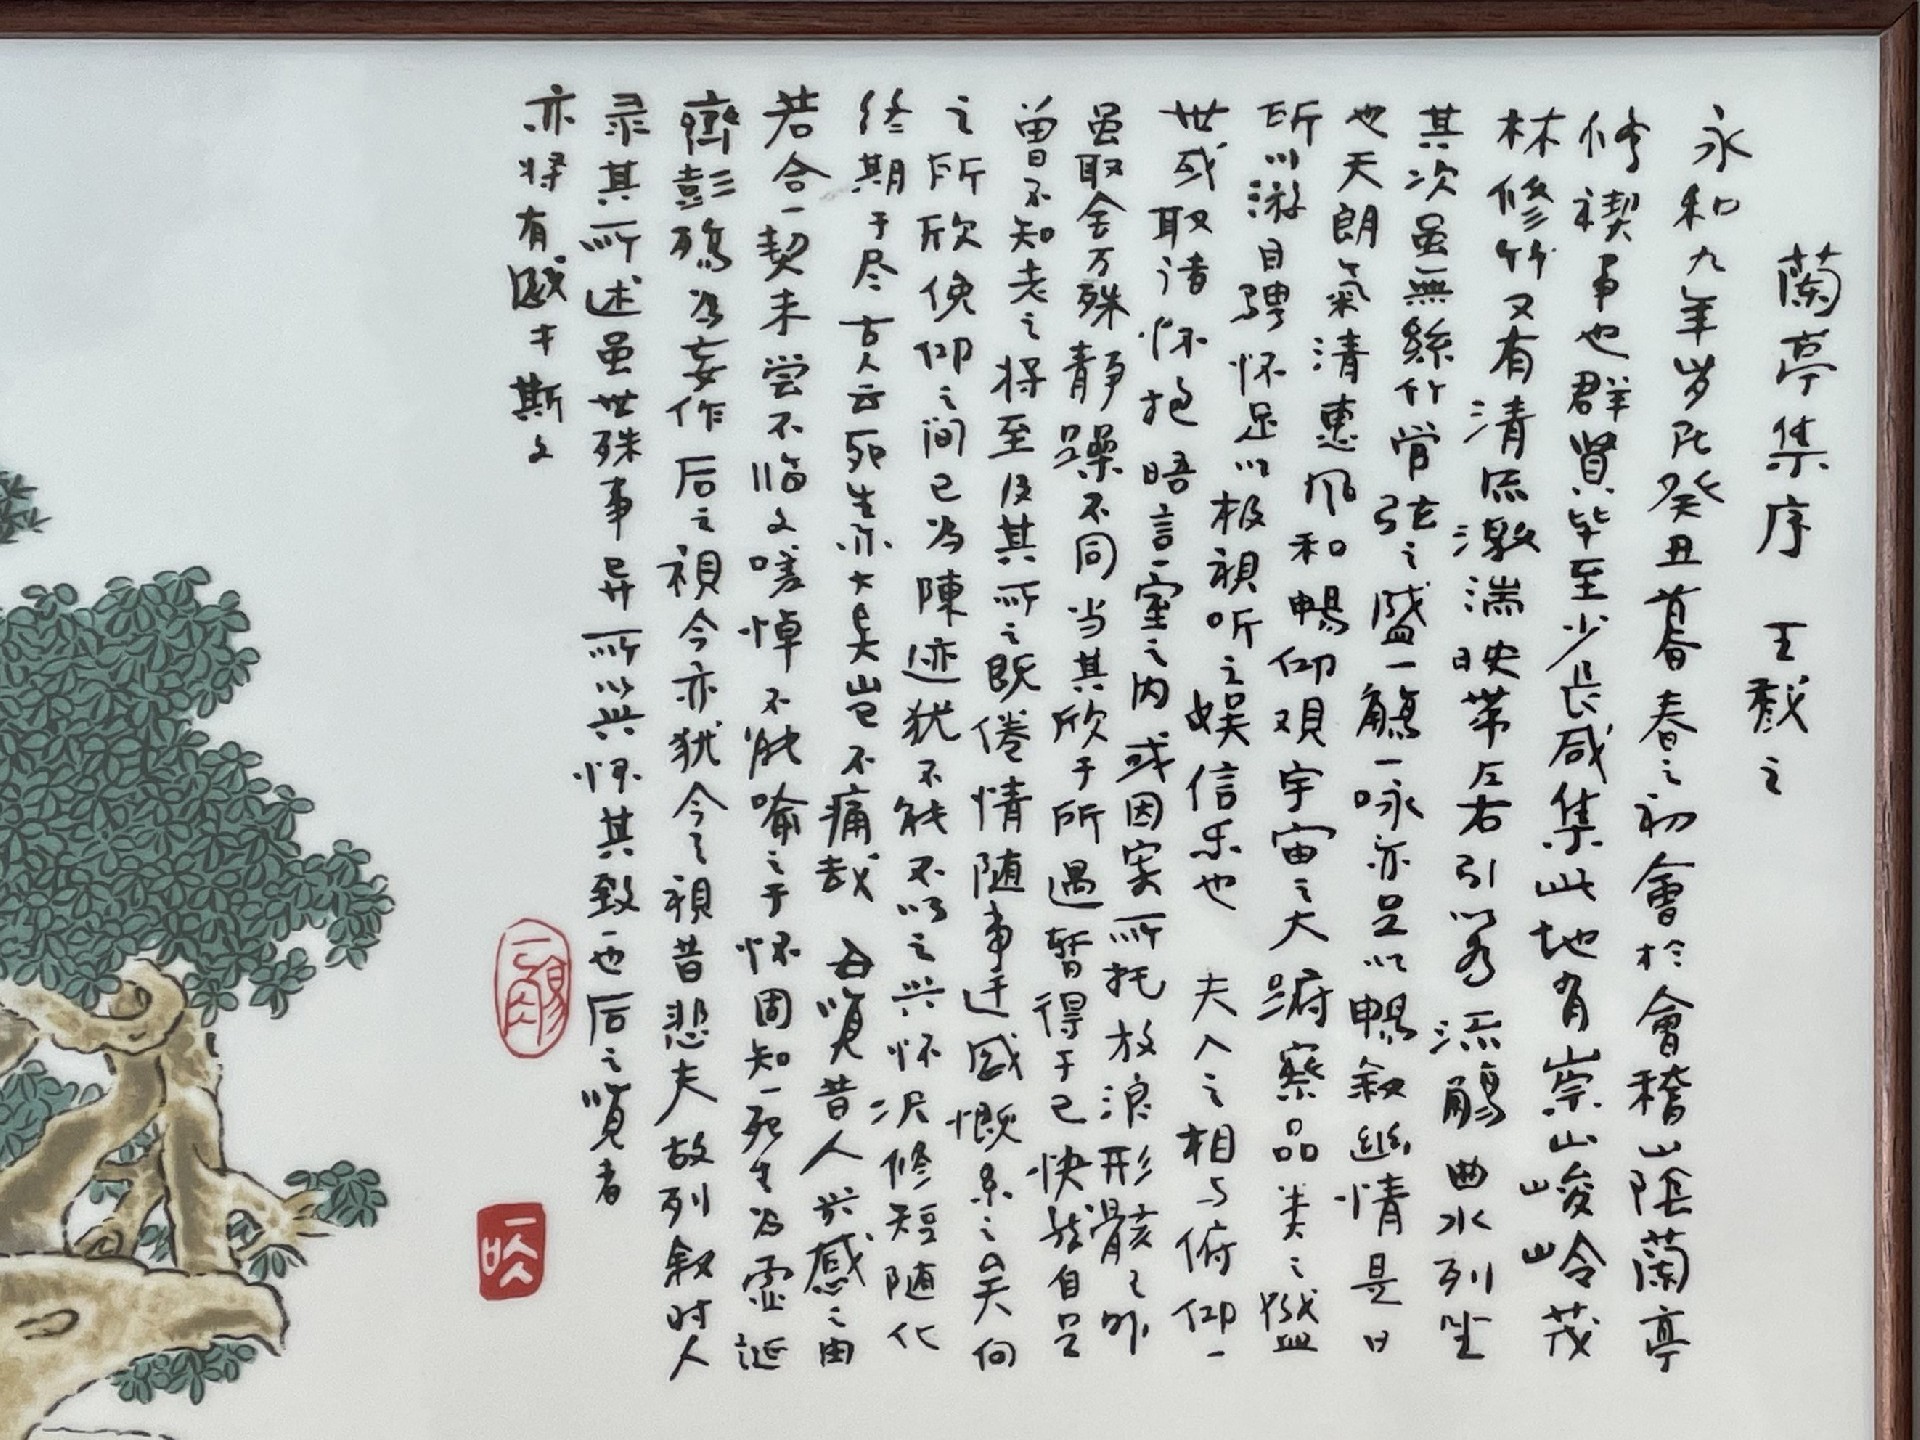 蘭亭集序 王羲之
永和九年岁在癸丑暮春之初會於會稽山陰蘭亭
修禊事也群賢毕至少長咸集此地有崇山峻岭茂
林修竹又有清流激湍映带左右引以為流觴曲水列坐
其次虽無絲竹管弦之盛一觴一咏亦足以暢叙幽情是日
也天朗氣清惠风和暢仰观宇宙之大俯察品类之盛
所以游目骋怀足以极視听之娱信乐也 夫人之相与俯仰一
世或取诸怀抱晤言一室之内或因寄所托放浪形骸之外
虽取舍万殊静躁不同当其欣于所遇暂得于己快然自足
曾不知老之将至及其所之既倦情随事迁感慨系之矣向
之所欣俛仰之间已为陳迹犹不能不以之兴怀况修短随化
终期于尽古人云死生亦大矣岂不痛哉每览昔人兴感之由
若合一契未尝不临文嗟悼不能喻之于怀固知一死生为虚诞
齊彭殇为妄作后之視今亦犹今之視昔悲夫故列叙时人
录其所述虽世殊事异所以兴怀其致一也后之览者
亦将有感于斯文